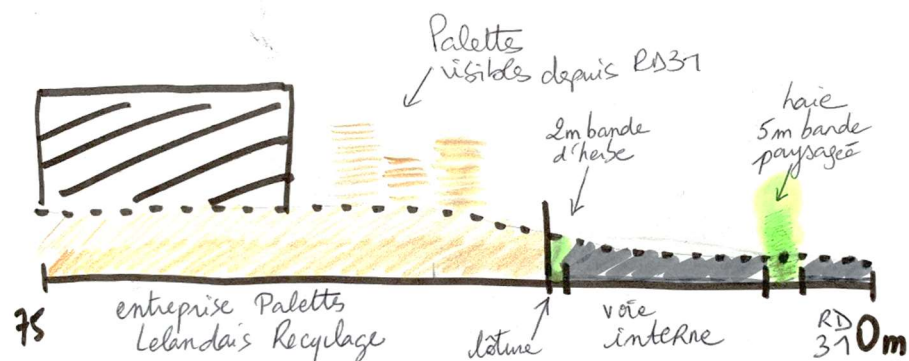 Palettes
visibles depuis RD31
2m bande
d'herbe
haie
5m bande
paysagée
75
entreprise Palettes
Lelandais Recyclage
clôture
voie
interne
RD
31
0m